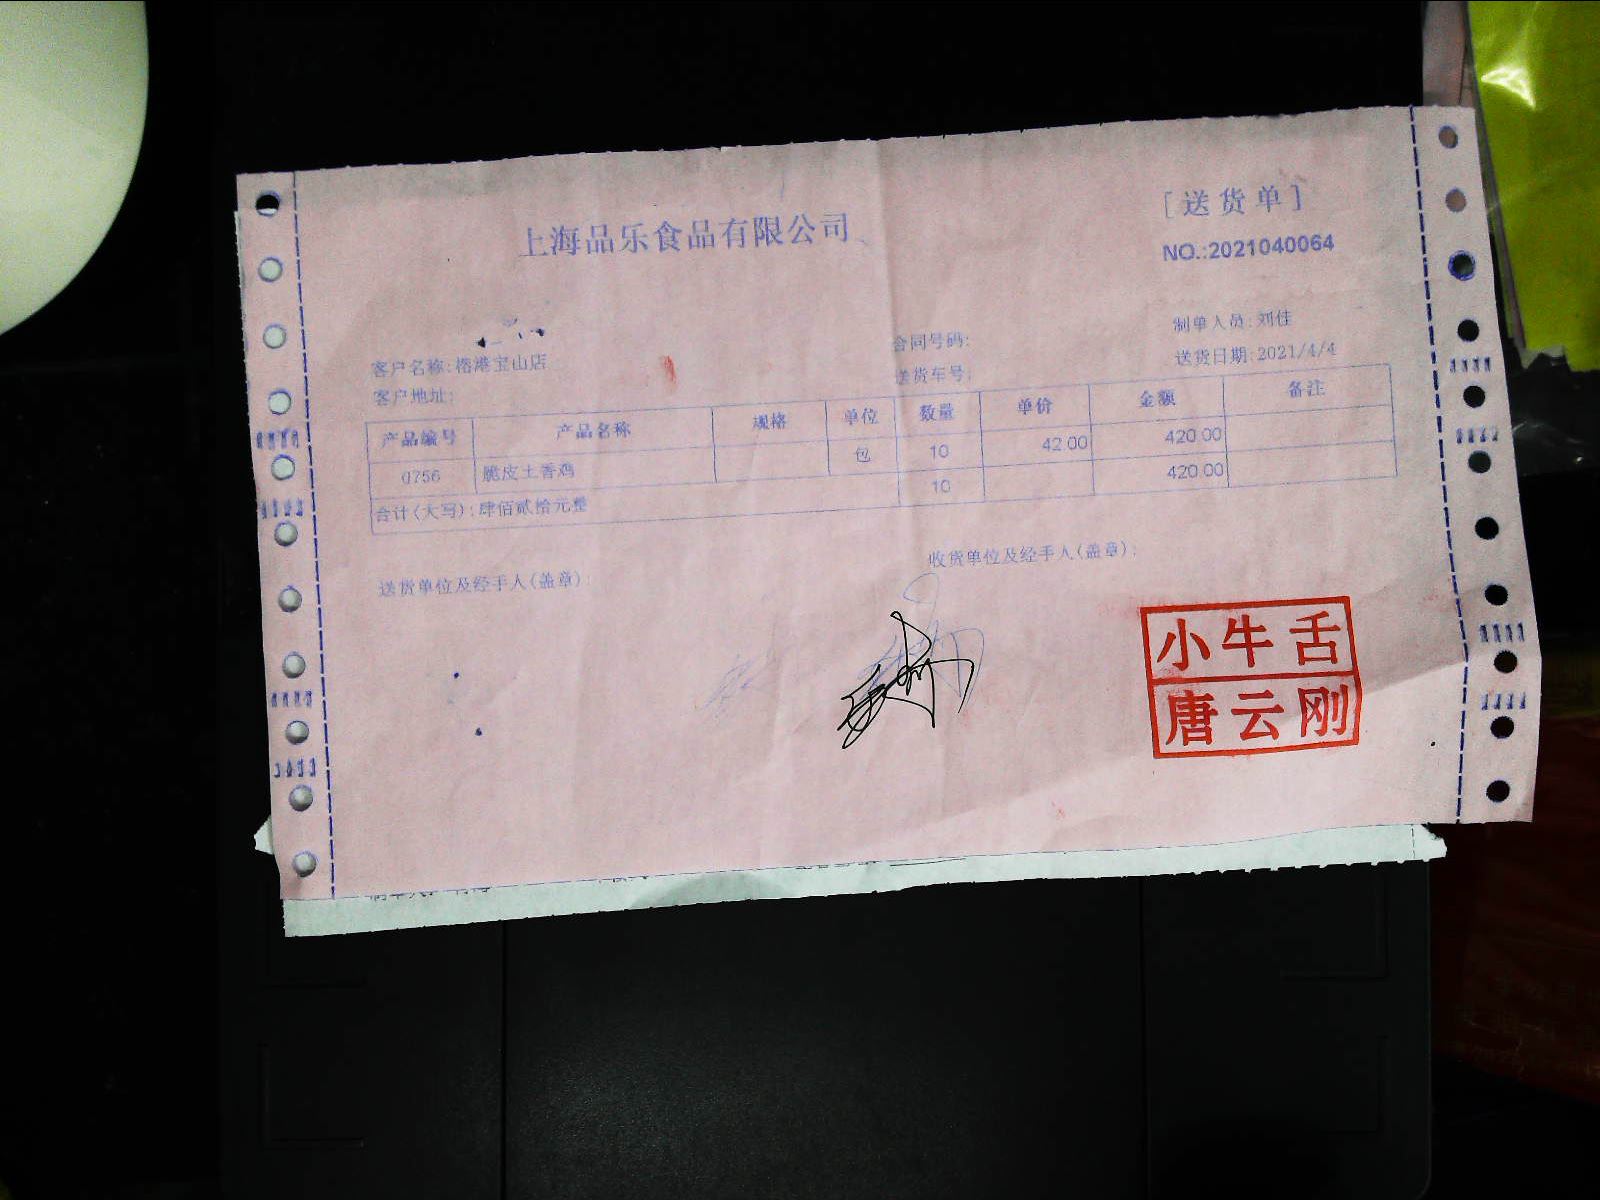 上海品乐食品有限公司
[送货单]
NO.:2021040064
客户名称:榕港宝山店
合同号码:
制单人员:刘佳
客户地址:
送货车号:
送货日期:2021/4/4
产品编号 产品名称 规格 单位 数量 单价 金额 备注
0756 脆皮土香鸡 包 10 42.00 420.00
合计(大写):肆佰贰拾元整 10 420.00
送货单位及经手人(盖章):
收货单位及经手人(盖章):
小牛舌
唐云刚